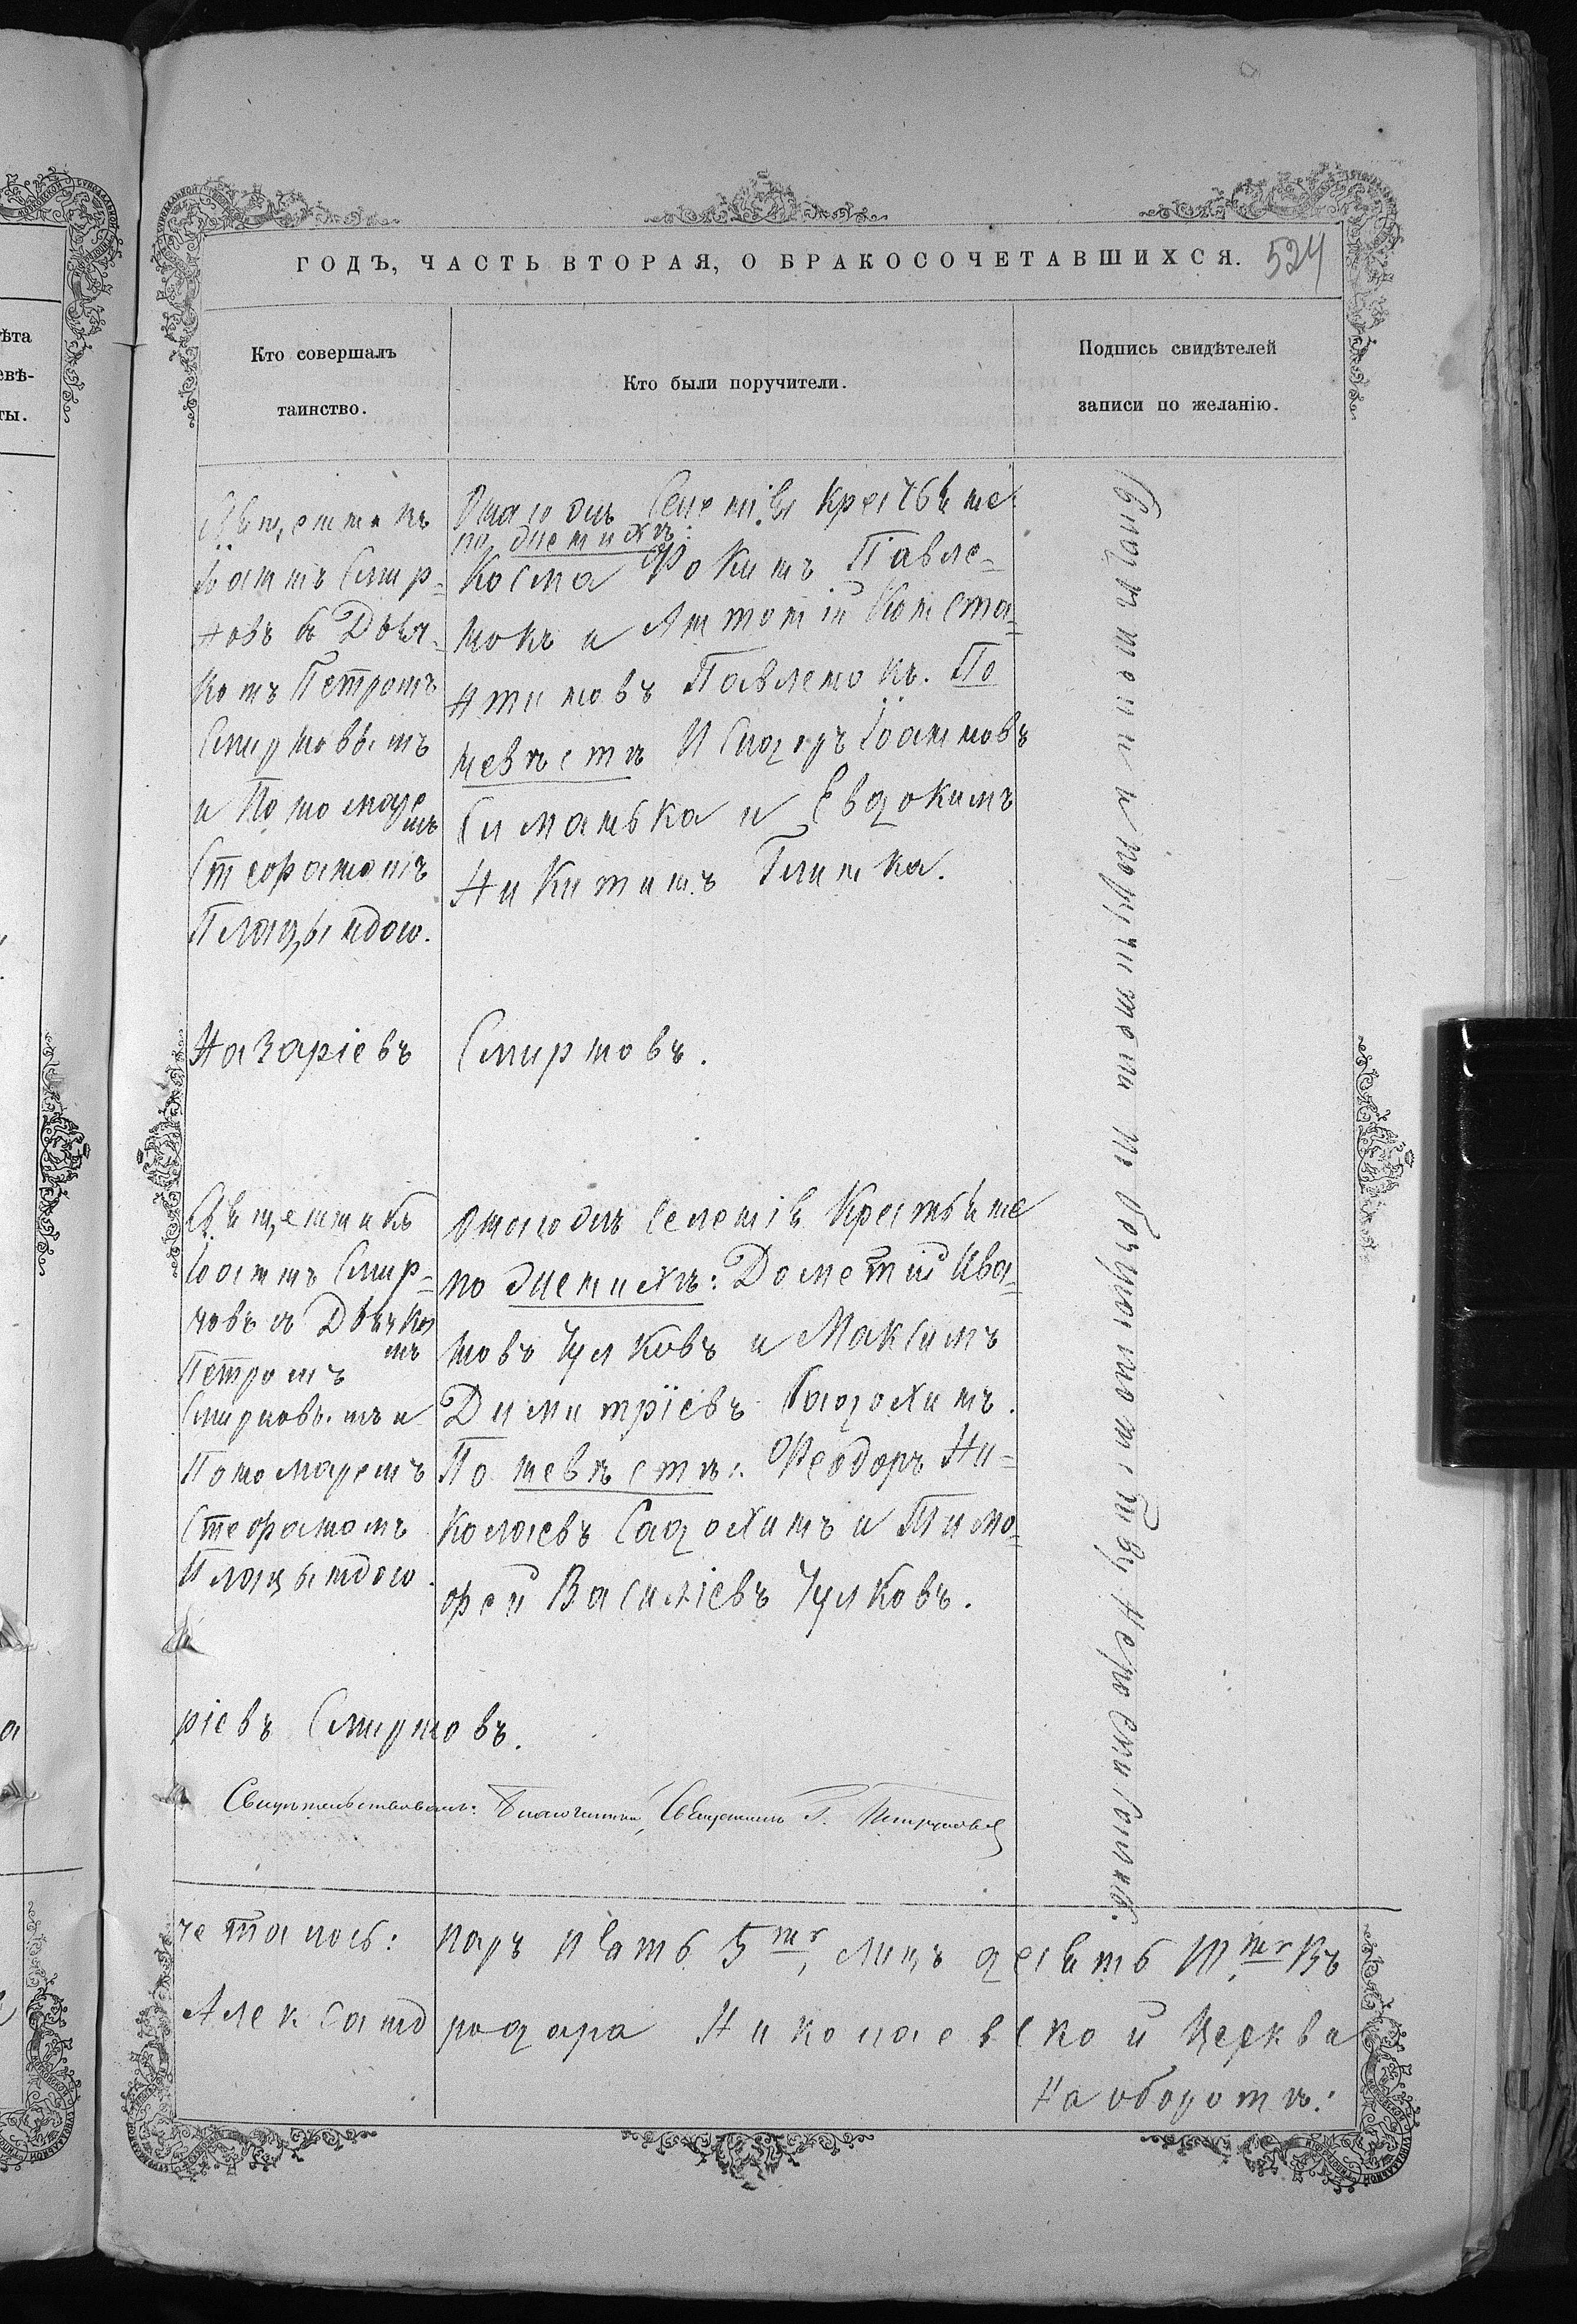 ГОДЪ, ЧАСТЬ ВТОРАЯ, О БРАКОСОЧЕТАВШИХСЯ.
524
Кто совершалъ
таинство.
Кто были поручители.
Подпись свидѣтелей
записи по желанію.
Священникъ
Іоаннъ Смир-
новъ съ Дья-
комъ Петромъ
Смирновымъ
и Пономаре
мъ
Стефаномъ
Плацындою.
Онаго дмъ Селенія Крестьяне
по женихѣ:
Косма Фокинъ Павле-
нокъ и Антоній Конста-
нтиновъ Павленокъ. По
невѣстѣ Исидоръ Іоанновъ
Симанька и Евдокимъ
Никитинъ Глинка.
Назаріевъ Смирновъ.
Священникъ
Іоаннъ Смир-
новъ съ Дьячко
мъ
Петромъ
Смирновымъ и
Пономаремъ
Стефаномъ
Плацындою.
Онаго дмъ Селенія Крестьяне
по женихѣ: Дометій Ива-
новъ Чулковъ и Максимъ
Димитріевъ Садохинъ.
По невѣстѣ: Феодоръ Ни-
колаевъ Садохинъ и Тимо-
фей Василіевъ Чулковъ.
ріевъ Смирновъ.
Свидѣтельствовалъ: Благочинный, Священникъ Г.
четалось: паръ пять 5ть, лицъ десять 10ть Въ
Александродара Николаевской Церкви
На оборотѣ: